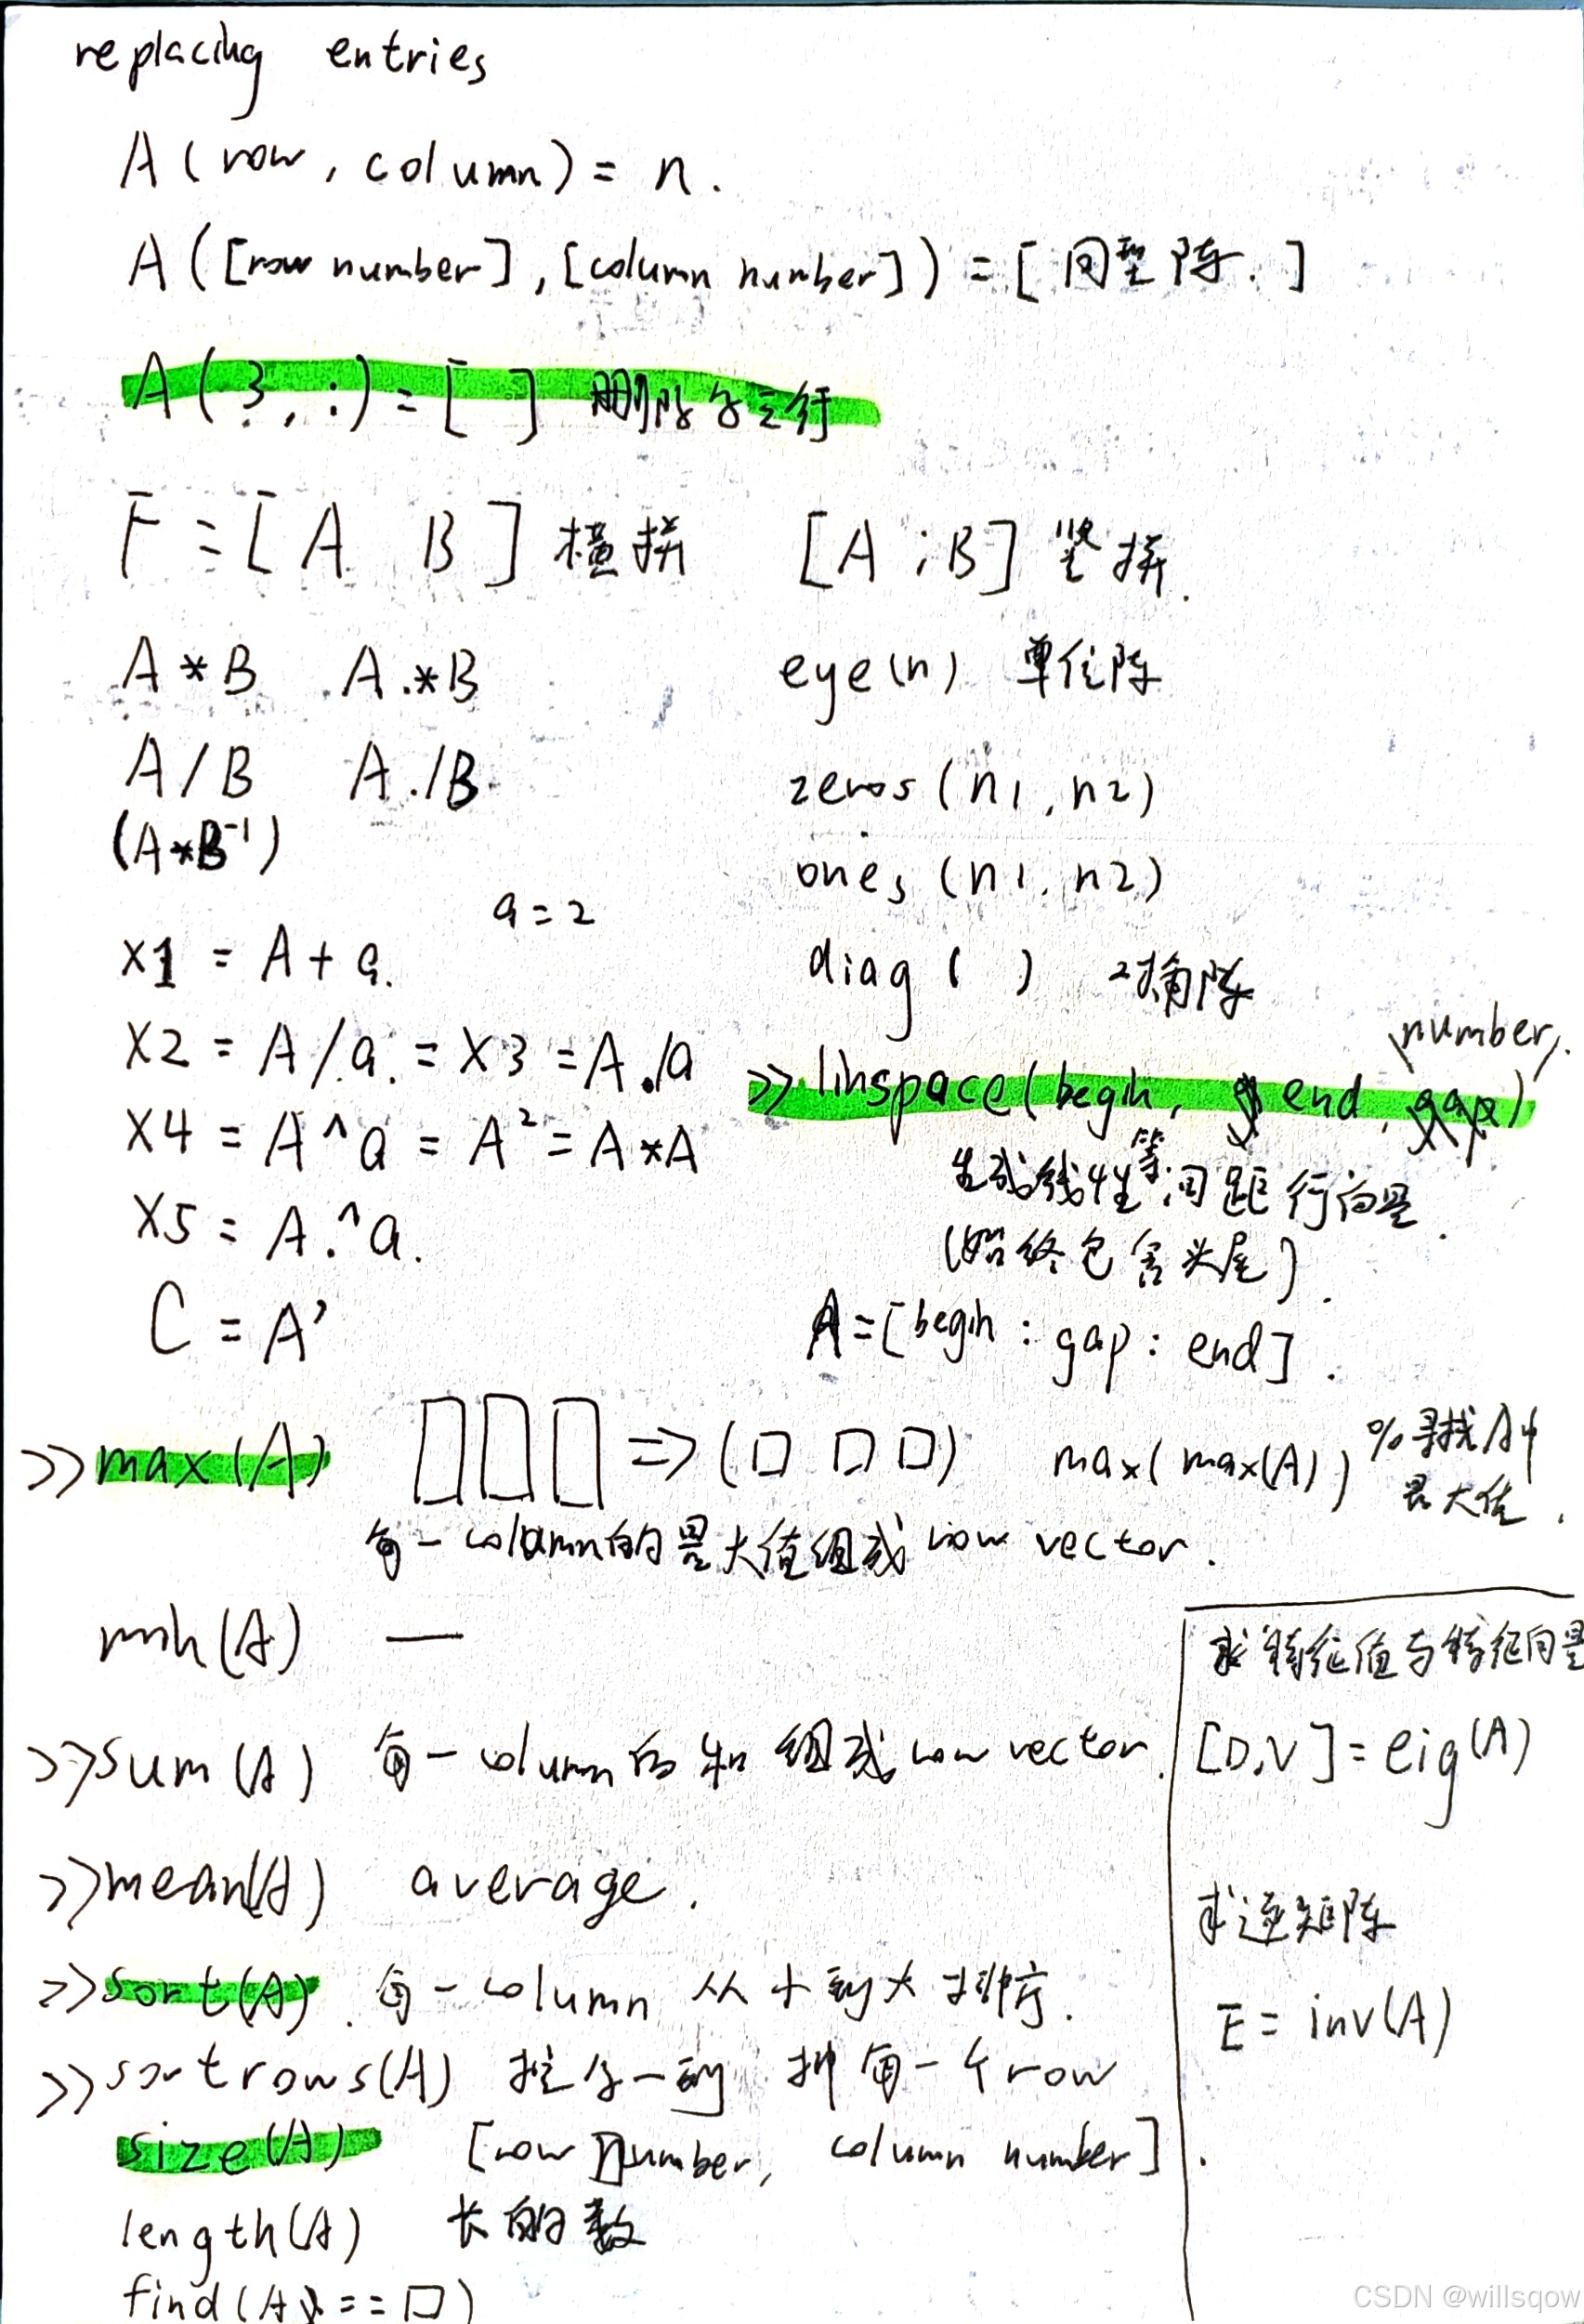 replacing entries
A(row, column) = n.
A([row number], [column number]) = [同型阵.]
A(3, :) = [ ] 删除第三行
F = [A B] 横拼 [A ; B] 竖拼.
A*B A.*B eye(n) 单位阵
A/B A./B zeros(n1, n2)
(A*B⁻¹) ones(n1, n2)
a = 2
x1 = A + a. diag( ) 对角阵
number
x2 = A/a. = x3 = A./a >> linspace(begin, end, gap)
x4 = A^a = A² = A*A 生成线性等间距行向量.
x5 = A.^a. (始终包含头尾).
C = A' A=[begin : gap : end].
>>max(A) => ( ) max(max(A)) %寻找A中
最大值.
每一column的最大值组成row vector.
min(A) —
求特征值与特征向量
>>sum(A) 每一column的和组成row vector. [D,V] = eig(A)
>>mean(A) average.
求逆矩阵
>>sort(A). 每一column从小到大排序.
E = inv(A)
>>sortrows(A) 按第一列排每一个row
size(A) [row number, column number].
length(A) 长的数
find(A == □)
CSDN @willsqow